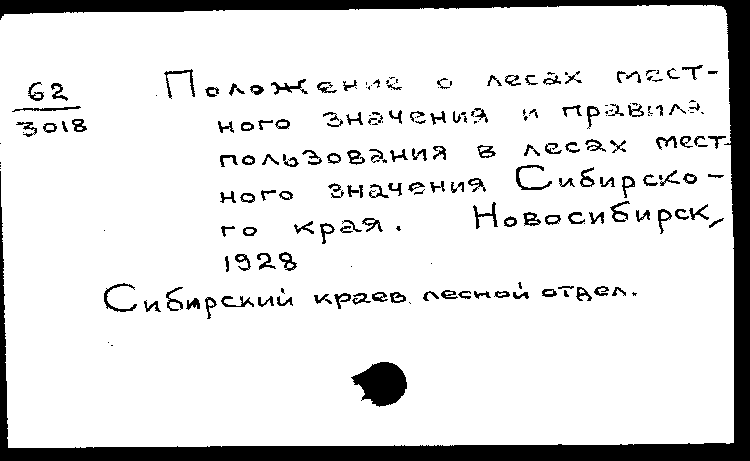 62
3018
Положение о лесах мест-
ного значения и правила
пользования в лесах мест-
ного значения Сибирско-
го края. Новосибирск,
1928
Сибирский краев. лесной отдел.